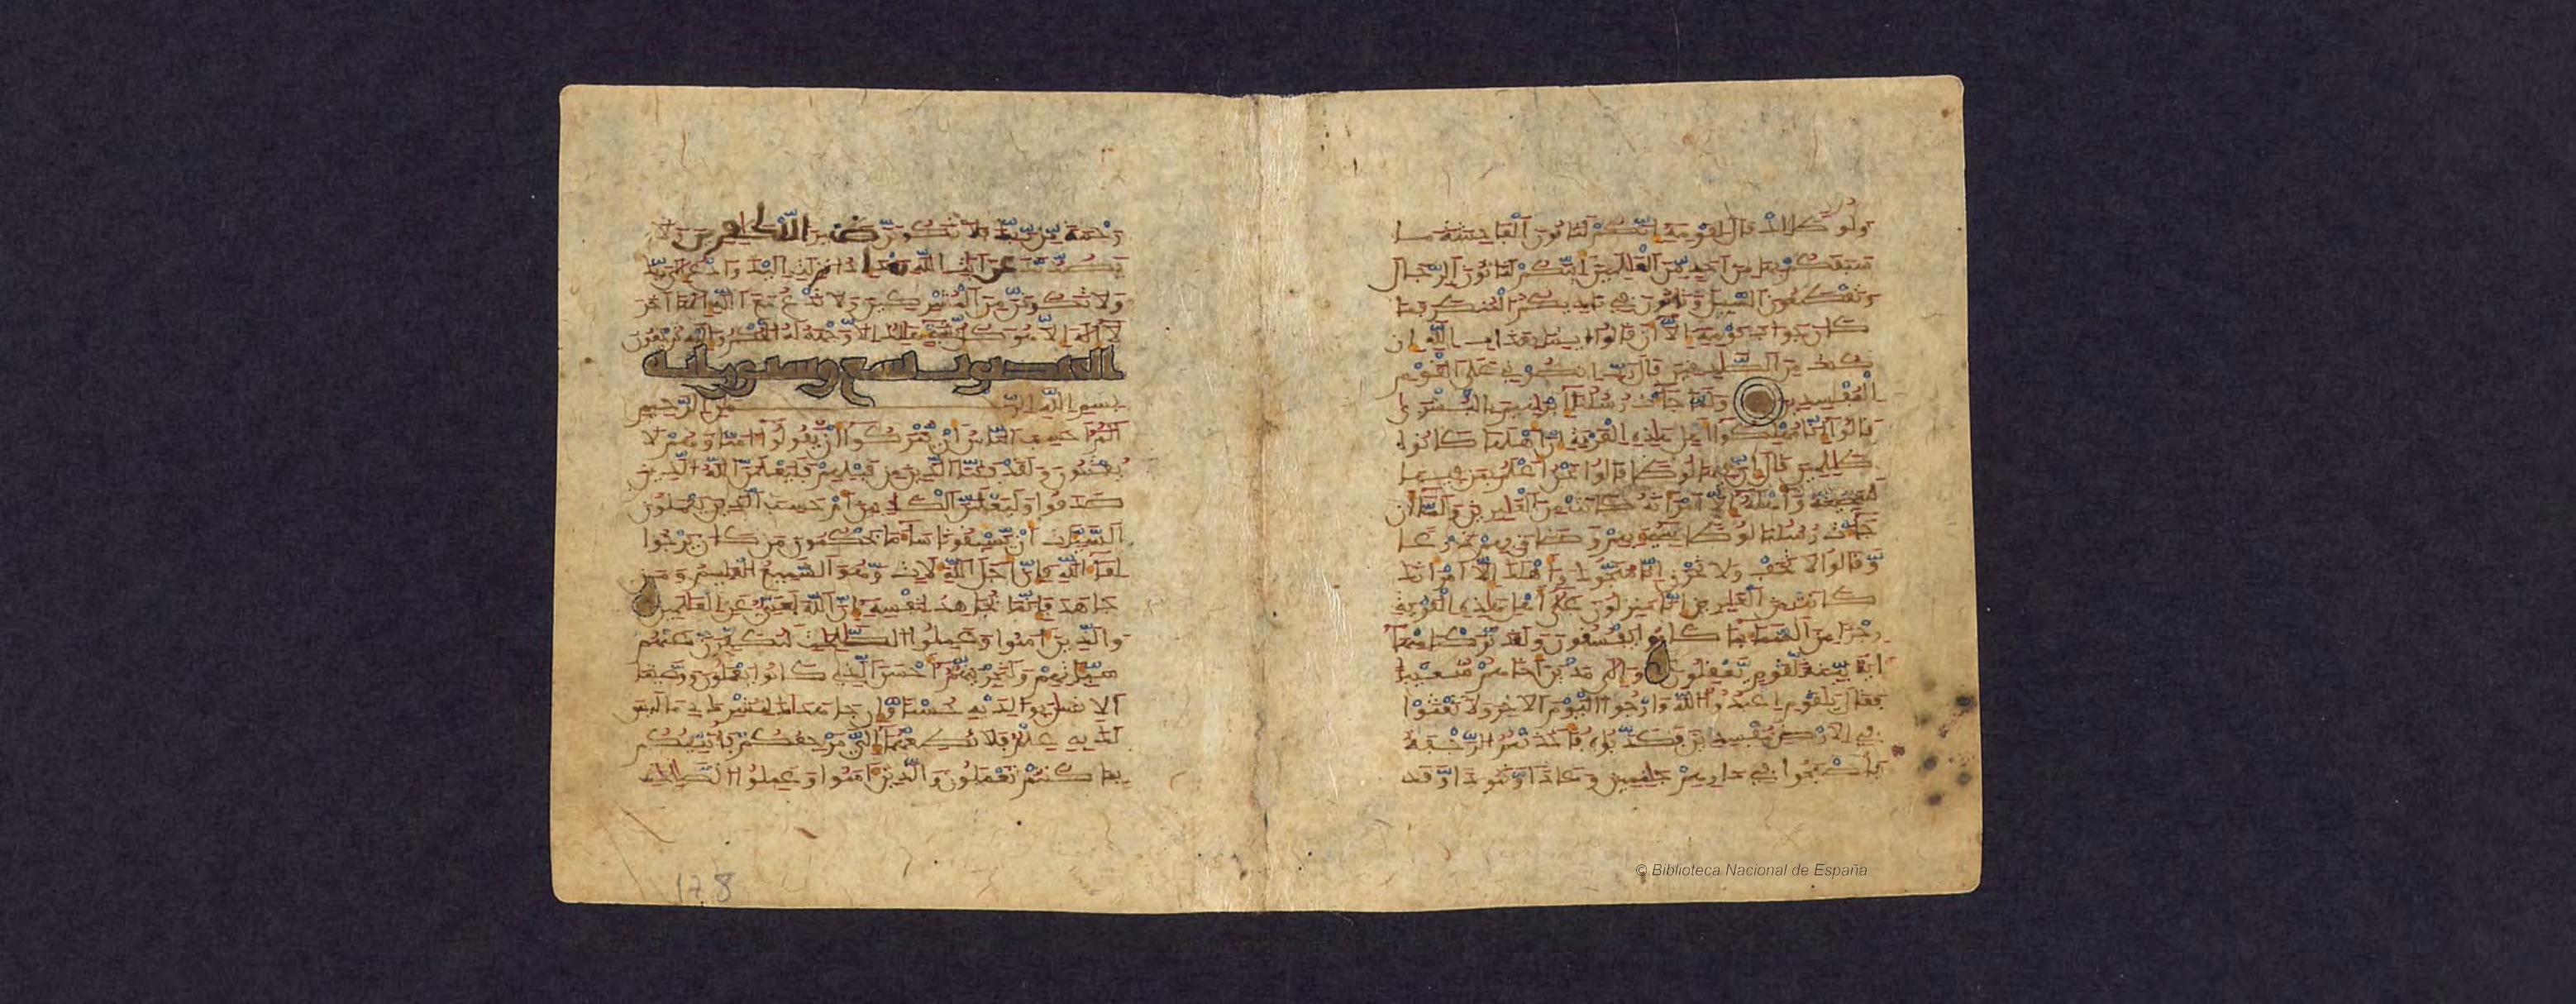 ولوطا اذ قال لقومه انكم لتاتون الفاحشة ما
سبقكم بها من احد من العلمين اينكم لتاتون الرجال
وتقطعون السبيل وتاتون في ناديكم المنكر فما
كان جواب قومه الا ان قالوا ايتنا بعذاب الله ان
كنت من الصدقين قال رب انصرني على القوم
المفسدين ولما جات رسلنا ابرهيم بالبشرى
قالوا انا مهلكوا اهل هذه القرية ان اهلها كانوا
ظلمين قال ان فيها لوطا قالوا نحن اعلم بمن فيها
لننجينه واهله الا امراته كانت من الغبرين ولما ان
جات رسلنا لوطا سي بهم وضاق بهم ذرعا
وقالوا لا تخف ولا تحزن انا منجوك واهلك الا امراتك
كانت من الغبرين انا منزلون على اهل هذه القرية
رجزا من السما بما كانوا يفسقون ولقد تركنا منها
اية بينة لقوم يعقلون والى مدين اخاهم شعيبا
فقال يقوم اعبدوا الله وارجوا اليوم الاخر ولا تعثوا
في الارض مفسدين فكذبوه فاخذتهم الرجفة
فاصبحوا في دارهم جثمين وعادا وثمودا وقد
رحمة من ربك فلا تكونن ظهيرا للكفرين ولا
يصدنك عن ايت الله بعد اذ انزلت اليك وادع الى ربك
ولا تكونن من المشركين ولا تدع مع الله الها اخر
لا اله الا هو كل شي هالك الا وجهه له الحكم واليه ترجعون
العنكبوت تسع وستون اية
بسم الله الرحمن الرحيم
الم احسب الناس ان يتركوا ان يقولوا امنا وهم لا
يفتنون ولقد فتنا الذين من قبلهم فليعلمن الله الذين
صدقوا وليعلمن الكذبين ام حسب الذين يعملون
السيات ان يسبقونا سا ما يحكمون من كان يرجوا
لقا الله فان اجل الله لات وهو السميع العليم ومن
جاهد فانما يجاهد لنفسه ان الله لغني عن العلمين
والذين امنوا وعملوا الصلحت لنكفرن عنهم
سياتهم ولنجزينهم احسن الذي كانوا يعملون ووصينا
الانسن بولديه حسنا وان جاهداك لتشرك بي ما ليس
لك به علم فلا تطعهما الي مرجعكم فانبيكم
بما كنتم تعملون والذين امنوا وعملوا الصلحت
178
© Biblioteca Nacional de España